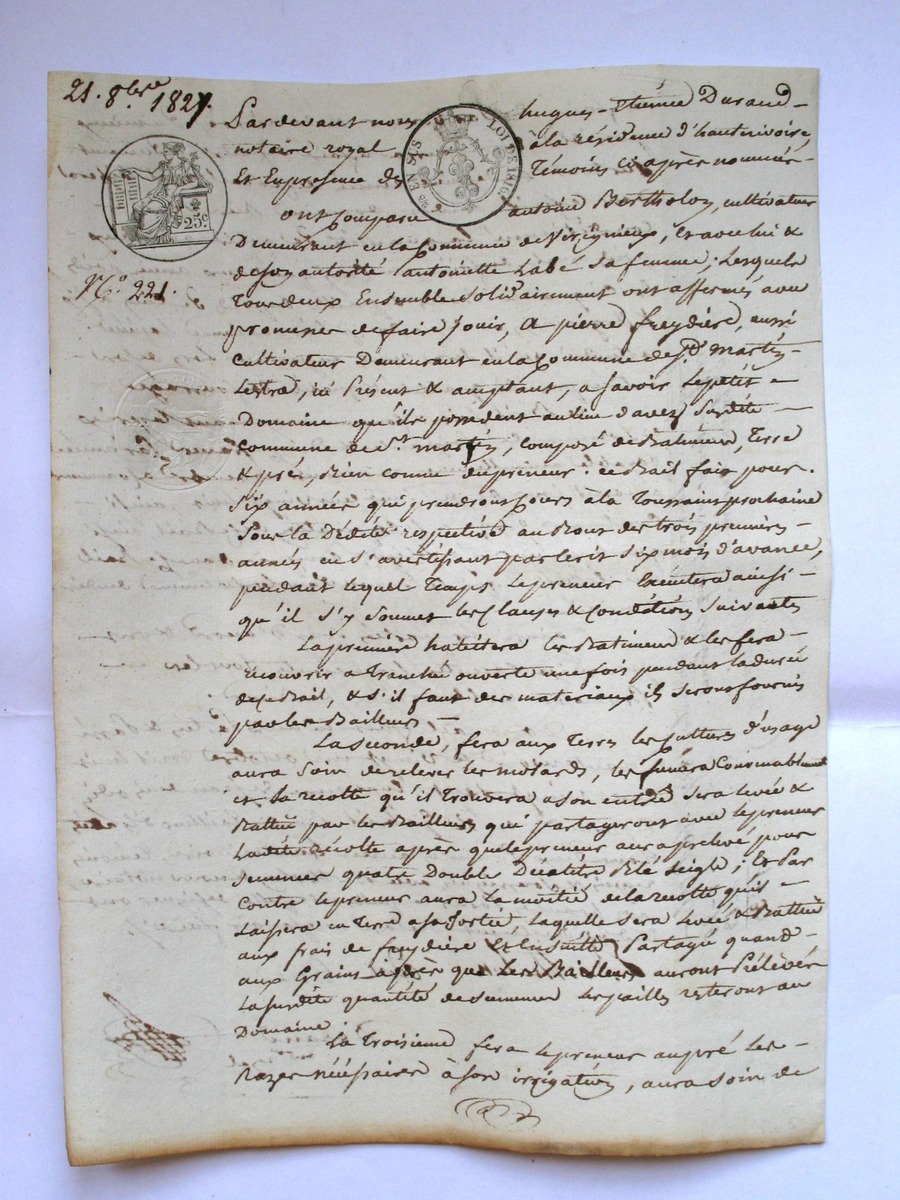 21. 8bre 1827
Pardevant nous hugues-Thérèse Durand-
notaire royal à la résidence d'hauterivoire
Et En presence des Témoins ci après nommés-
ont Comparu antoine Bertholon, cultivateur
Demeurant en la Commune de Virigneux, Et avec lui &
de son autorité antoinette Labé Sa femme; Lesquels
Tous deux Ensemble solidairement ont affermés avec
promesse de faire jouir, a pierre freydière, aussi
Cultivateur Demeurant en la Commune de St. martin-
Lestra, ici Présent & acceptant, a savoir Le petit-
Domaine qu'ils possedent au lieu davez Susdite-
commune de St. martin, composé de Batiments, Terre
& pré, Bien connu du preneur: ce Bail fait pour.
Six années qui prendront Cours à la Toussaint prochaine
Sous la Dédite respective au Bout des trois premières-
années en s'avertissant par Ecrit Six mois d'avance,
pendant lequel Temps Le preneur Exécutera ainsi-
qu'il s'y Soumet les Clauses & Conditions Suivantes
La première habitera les Batiments & les fera-
recouvrir a tranchée ouverte une fois pendant la durée
de ce Bail, & s'il faut des materiaux ils seront fournis
par les Bailleurs-
La seconde, fera aux Terres les Cultures d'usage
aura Soin de relever les motards, les fumera Convenablement
et la récolte qu'il trouvera a son entrée sera levée &
Battue par les Bailleurs qui partageront avec le preneur
Ladite récolte après que le preneur aura prélevé pour
semence quatre Double Décalitre Blé seigle; Et Par
contre le preneur aura La moitié de la récolte qu'il-
Laissera en Terre a sa sortie laquelle sera levée & Battue
aux frais de freydière Et Ensuitte Partagé quand-
aux Grains après que Les Bailleurs auront Prélevés
La susdite quantité de semence les pailles resteront au
Domaine
La Troisieme fera le preneur au pré Les-
Razes nécéssaires à son irrigation, aura soin de
N.° 221.
25c
EN SUS
LOI DE 1816